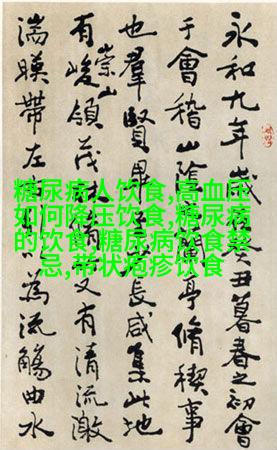 永和九年歲癸丑暮春之初會
于會稽山陰蘭亭脩稧事
也羣賢畢長咸集此地
有崇山峻領茂又有清流激
湍暎帶左為流觴曲水
糖尿病人饮食,高血压
如何降压饮食,糖尿病
的饮食,糖尿病饮食禁
忌,带状疱疹饮食